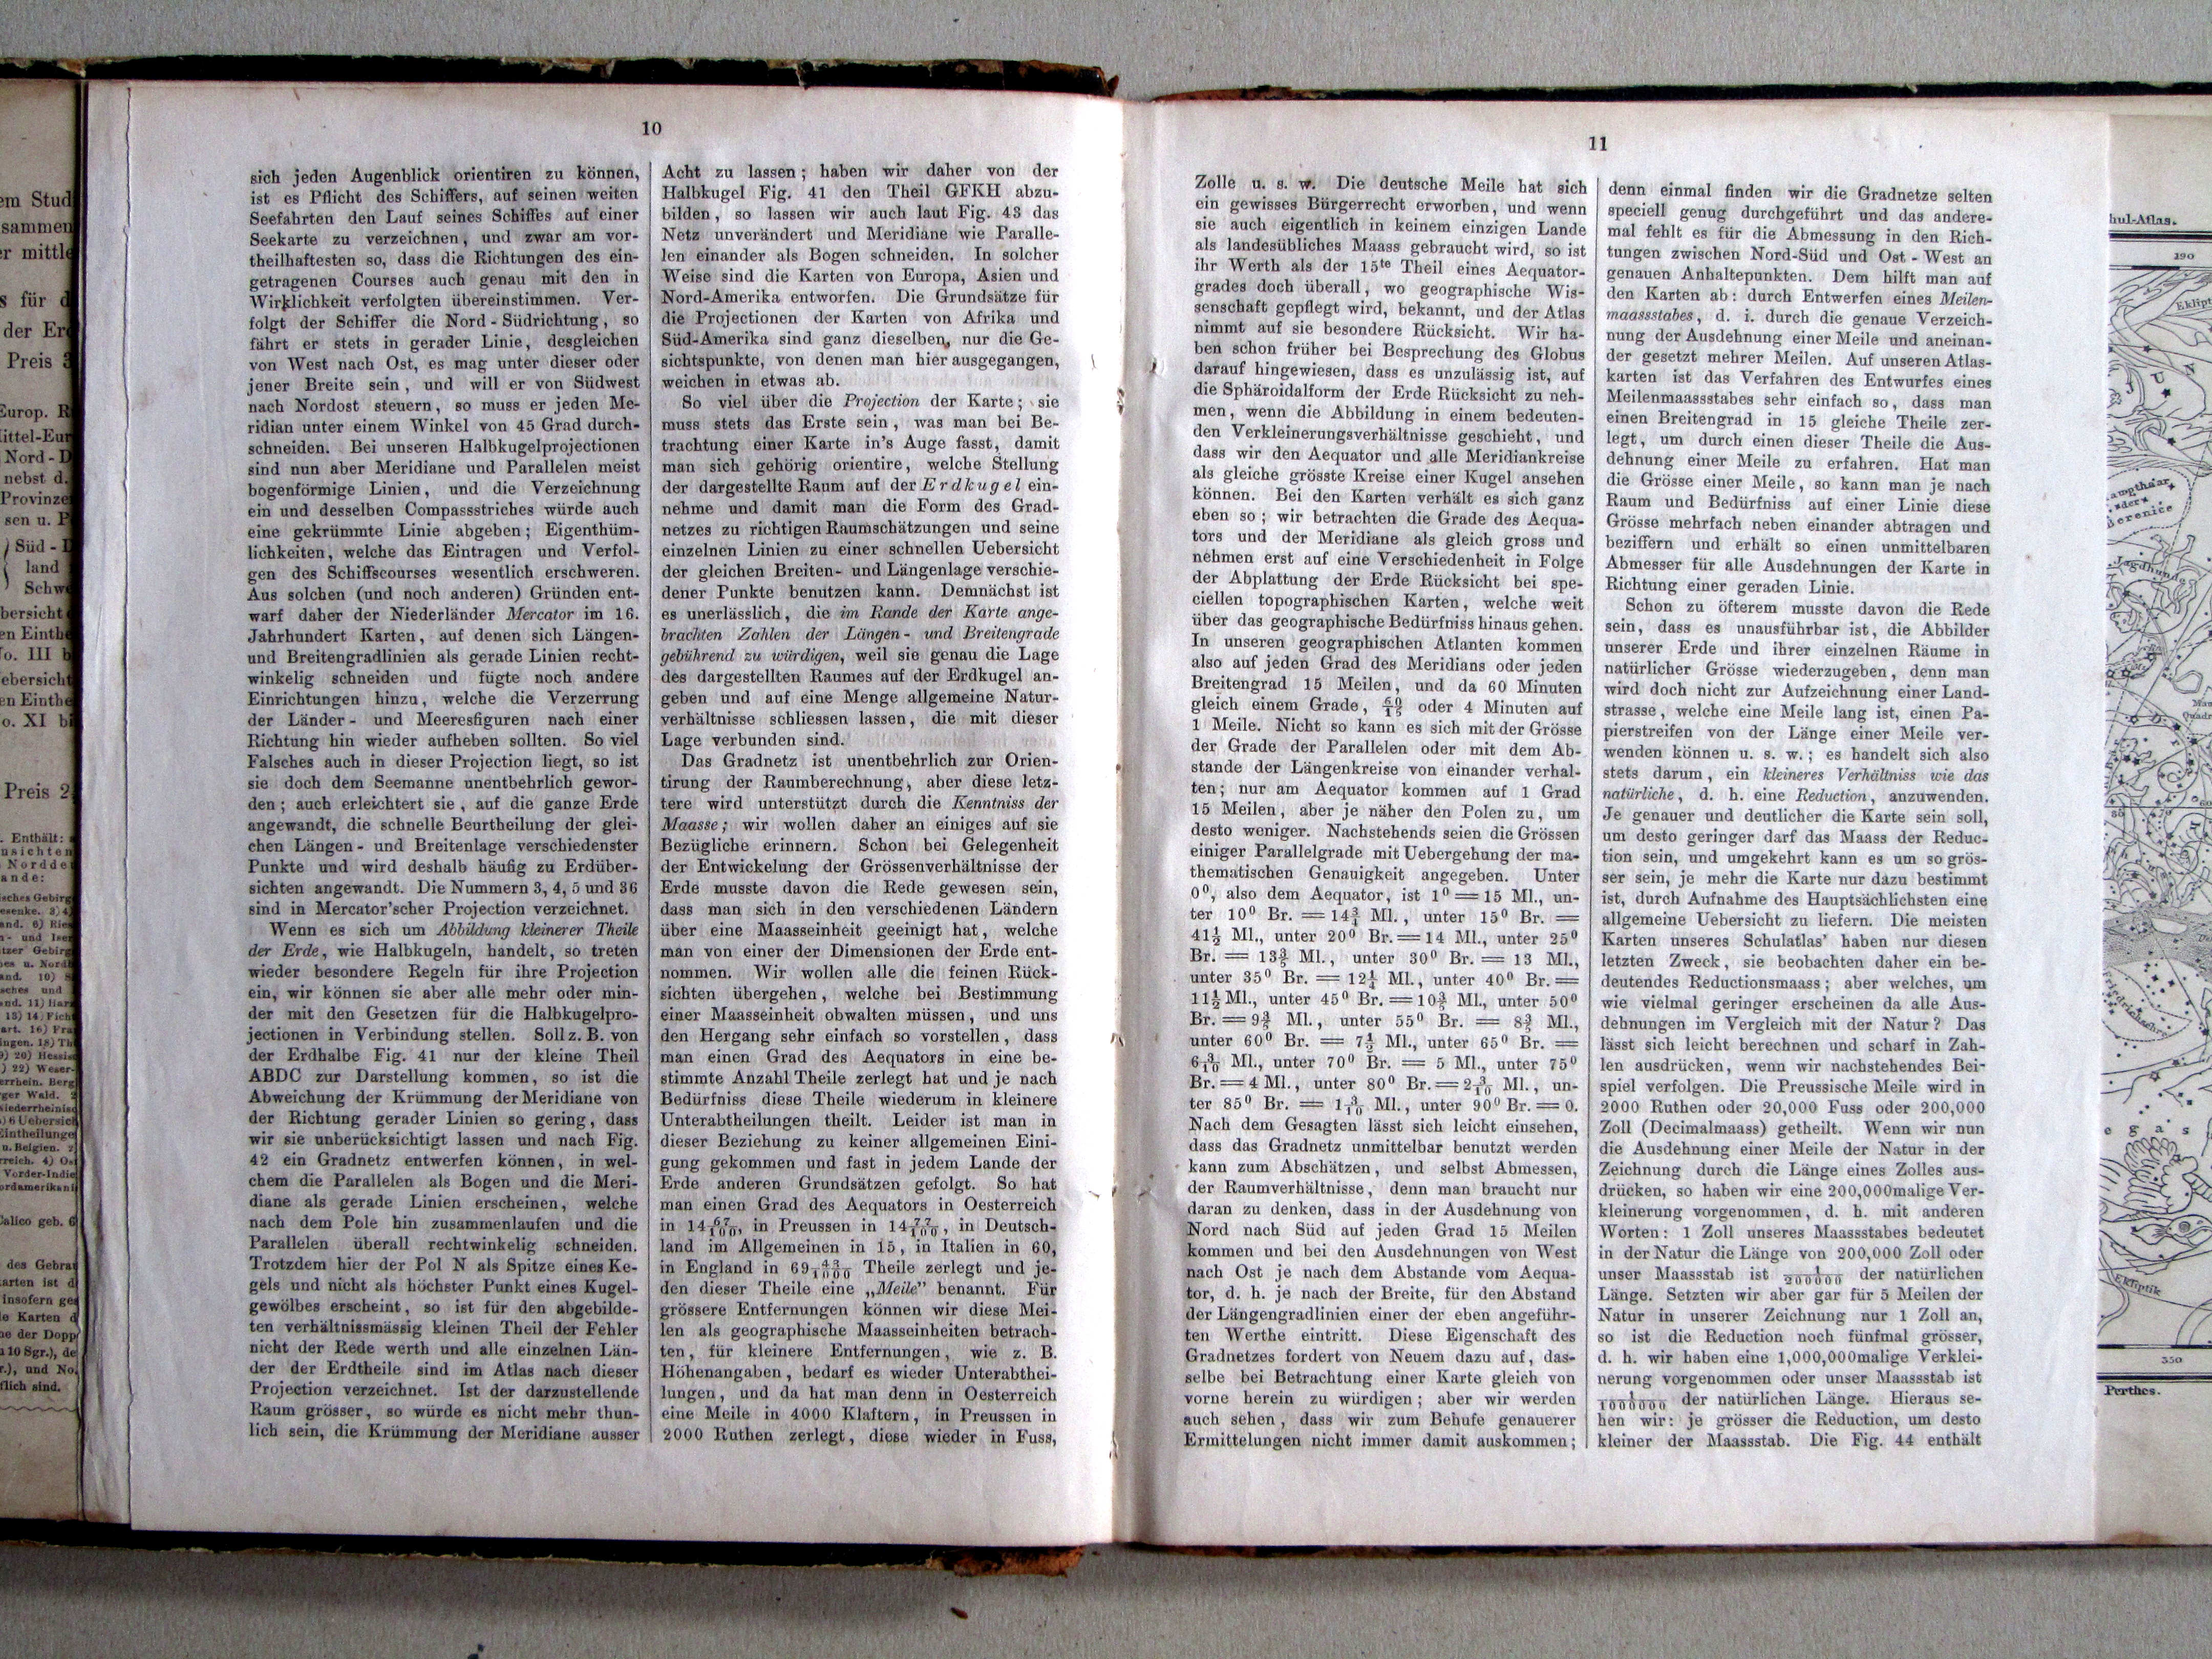 10
sich jeden Augenblick orientiren zu können,
ist es Pflicht des Schiffers, auf seinen weiten
Seefahrten den Lauf seines Schiffes auf einer
Seekarte zu verzeichnen, und zwar am vor-
theilhaftesten so, dass die Richtungen des ein-
getragenen Courses auch genau mit den in
Wirklichkeit verfolgten übereinstimmen. Ver-
folgt der Schiffer die Nord-Südrichtung, so
fährt er stets in gerader Linie, desgleichen
von West nach Ost, es mag unter dieser oder
jener Breite sein, und will er von Südwest
nach Nordost steuern, so muss er jeden Me-
ridian unter einem Winkel von 45 Grad durch-
schneiden. Bei unseren Halbkugelprojectionen
sind nun aber Meridiane und Parallelen meist
bogenförmige Linien, und die Verzeichnung
ein und desselben Compassstriches würde auch
eine gekrümmte Linie abgeben; Eigenthüm-
lichkeiten, welche das Eintragen und Verfol-
gen des Schiffscourses wesentlich erschweren.
Aus solchen (und noch anderen) Gründen ent-
warf daher der Niederländer Mercator im 16.
Jahrhundert Karten, auf denen sich Längen-
und Breitengradlinien als gerade Linien recht-
winkelig schneiden und fügte noch andere
Einrichtungen hinzu, welche die Verzerrung
der Länder- und Meeresfiguren nach einer
Richtung hin wieder aufheben sollten. So viel
Falsches auch in dieser Projection liegt, so ist
sie doch dem Seemanne unentbehrlich gewor-
den; auch erleichtert sie, auf die ganze Erde
angewandt, die schnelle Beurtheilung der glei-
chen Längen- und Breitenlage verschiedenster
Punkte und wird deshalb häufig zu Erdüber-
sichten angewandt. Die Nummern 3, 4, 5 und 36
sind in Mercator'scher Projection verzeichnet.
Wenn es sich um Abbildung kleinerer Theile
der Erde, wie Halbkugeln, handelt, so treten
wieder besondere Regeln für ihre Projection
ein, wir können sie aber alle mehr oder min-
der mit den Gesetzen für die Halbkugelpro-
jectionen in Verbindung stellen. Soll z. B. von
der Erdhalbe Fig. 41 nur der kleine Theil
ABDC zur Darstellung kommen, so ist die
Abweichung der Krümmung der Meridiane von
der Richtung gerader Linien so gering, dass
wir sie unberücksichtigt lassen und nach Fig.
42 ein Gradnetz entwerfen können, in wel-
chem die Parallelen als Bogen und die Meri-
diane als gerade Linien erscheinen, welche
nach dem Pole hin zusammenlaufen und die
Parallelen überall rechtwinkelig schneiden.
Trotzdem hier der Pol N als Spitze eines Ke-
gels und nicht als höchster Punkt eines Kugel-
gewölbes erscheint, so ist für den abgebilde-
ten verhältnissmässig kleinen Theil der Fehler
nicht der Rede werth und alle einzelnen Län-
der der Erdtheile sind im Atlas nach dieser
Projection verzeichnet. Ist der darzustellende
Raum grösser, so würde es nicht mehr thun-
lich sein, die Krümmung der Meridiane ausser
Acht zu lassen; haben wir daher von der
Halbkugel Fig. 41 den Theil GFKH abzu-
bilden, so lassen wir auch laut Fig. 43 das
Netz unverändert und Meridiane wie Paralle-
len einander als Bogen schneiden. In solcher
Weise sind die Karten von Europa, Asien und
Nord-Amerika entworfen. Die Grundsätze für
die Projectionen der Karten von Afrika und
Süd-Amerika sind ganz dieselben, nur die Ge-
sichtspunkte, von denen man hier ausgegangen,
weichen in etwas ab.
So viel über die Projection der Karte; sie
muss stets das Erste sein, was man bei Be-
trachtung einer Karte in's Auge fasst, damit
man sich gehörig orientire, welche Stellung
der dargestellte Raum auf der Erdkugel ein-
nehme und damit man die Form des Grad-
netzes zu richtigen Raumschätzungen und seine
einzelnen Linien zu einer schnellen Uebersicht
der gleichen Breiten- und Längenlage verschie-
dener Punkte benutzen kann. Demnächst ist
es unerlässlich, die im Rande der Karte ange-
brachten Zahlen der Längen- und Breitengrade
gebührend zu würdigen, weil sie genau die Lage
des dargestellten Raumes auf der Erdkugel an-
geben und auf eine Menge allgemeine Natur-
verhältnisse schliessen lassen, die mit dieser
Lage verbunden sind.
Das Gradnetz ist unentbehrlich zur Orien-
tirung der Raumberechnung, aber diese letz-
tere wird unterstützt durch die Kenntniss der
Maasse; wir wollen daher an einiges auf sie
Bezügliche erinnern. Schon bei Gelegenheit
der Entwickelung der Grössenverhältnisse der
Erde musste davon die Rede gewesen sein,
dass man sich in den verschiedenen Ländern
über eine Maasseinheit geeinigt hat, welche
man von einer der Dimensionen der Erde ent-
nommen. Wir wollen alle die feinen Rück-
sichten übergehen, welche bei Bestimmung
einer Maasseinheit obwalten müssen, und uns
den Hergang sehr einfach so vorstellen, dass
man einen Grad des Aequators in eine be-
stimmte Anzahl Theile zerlegt hat und je nach
Bedürfniss diese Theile wiederum in kleinere
Unterabtheilungen theilt. Leider ist man in
dieser Beziehung zu keiner allgemeinen Eini-
gung gekommen und fast in jedem Lande der
Erde anderen Grundsätzen gefolgt. So hat
man einen Grad des Aequators in Oesterreich
in 14 67/100, in Preussen in 14 77/100, in Deutsch-
land im Allgemeinen in 15, in Italien in 60,
in England in 69 43/1000 Theile zerlegt und je-
den dieser Theile eine „Meile” benannt. Für
grössere Entfernungen können wir diese Mei-
len als geographische Maasseinheiten betrach-
ten, für kleinere Entfernungen, wie z. B.
Höhenangaben, bedarf es wieder Unterabthei-
lungen, und da hat man denn in Oesterreich
eine Meile in 4000 Klaftern, in Preussen in
2000 Ruthen zerlegt, diese wieder in Fuss,
11
Zolle u. s. w. Die deutsche Meile hat sich
ein gewisses Bürgerrecht erworben, und wenn
sie auch eigentlich in keinem einzigen Lande
als landesübliches Maass gebraucht wird, so ist
ihr Werth als der 15te Theil eines Aequator-
grades doch überall, wo geographische Wis-
senschaft gepflegt wird, bekannt, und der Atlas
nimmt auf sie besondere Rücksicht. Wir ha-
ben schon früher bei Besprechung des Globus
darauf hingewiesen, dass es unzulässig ist, auf
die Sphäroidalform der Erde Rücksicht zu neh-
men, wenn die Abbildung in einem bedeuten-
den Verkleinerungsverhältnisse geschieht, und
dass wir den Aequator und alle Meridiankreise
als gleiche grösste Kreise einer Kugel ansehen
können. Bei den Karten verhält es sich ganz
eben so; wir betrachten die Grade des Aequa-
tors und der Meridiane als gleich gross und
nehmen erst auf eine Verschiedenheit in Folge
der Abplattung der Erde Rücksicht bei spe-
ciellen topographischen Karten, welche weit
über das geographische Bedürfniss hinaus gehen.
In unseren geographischen Atlanten kommen
also auf jeden Grad des Meridians oder jeden
Breitengrad 15 Meilen, und da 60 Minuten
gleich einem Grade, 60/15 oder 4 Minuten auf
1 Meile. Nicht so kann es sich mit der Grösse
der Grade der Parallelen oder mit dem Ab-
stande der Längenkreise von einander verhal-
ten; nur am Aequator kommen auf 1 Grad
15 Meilen, aber je näher den Polen zu, um
desto weniger. Nachstehends seien die Grössen
einiger Parallelgrade mit Uebergehung der ma-
thematischen Genauigkeit angegeben. Unter
0⁰, also dem Aequator, ist 1⁰ = 15 Ml., un-
ter 10⁰ Br. = 14¾ Ml., unter 15⁰ Br. =
41½ Ml., unter 20⁰ Br. = 14 Ml., unter 25⁰
Br. = 13 Ml., unter 30⁰ Br. = 13 Ml.,
unter 35⁰ Br. = 12¼ Ml., unter 40⁰ Br. =
11½ Ml., unter 45⁰ Br. = 10 Ml., unter 50⁰
Br. = 9 Ml., unter 55⁰ Br. = 8 Ml.,
unter 60⁰ Br. = 7½ Ml., unter 65⁰ Br. =
6 3/10 Ml., unter 70⁰ Br. = 5 Ml., unter 75⁰
Br. = 4 Ml., unter 80⁰ Br. = 2 Ml., un-
ter 85⁰ Br. = 1 3/10 Ml., unter 90⁰ Br. = 0.
Nach dem Gesagten lässt sich leicht einsehen,
dass das Gradnetz unmittelbar benutzt werden
kann zum Abschätzen, und selbst Abmessen,
der Raumverhältnisse, denn man braucht nur
daran zu denken, dass in der Ausdehnung von
Nord nach Süd auf jeden Grad 15 Meilen
kommen und bei den Ausdehnungen von West
nach Ost je nach dem Abstande vom Aequa-
tor, d. h. je nach der Breite, für den Abstand
der Längengradlinien einer der eben angeführ-
ten Werthe eintritt. Diese Eigenschaft des
Gradnetzes fordert von Neuem dazu auf, das-
selbe bei Betrachtung einer Karte gleich von
vorne herein zu würdigen; aber wir werden
auch sehen, dass wir zum Behufe genauerer
Ermittelungen nicht immer damit auskommen;
denn einmal finden wir die Gradnetze selten
speciell genug durchgeführt und das andere-
mal fehlt es für die Abmessung in den Rich-
tungen zwischen Nord-Süd und Ost-West an
genauen Anhaltepunkten. Dem hilft man auf
den Karten ab: durch Entwerfen eines Meilen-
maassstabes, d. i. durch die genaue Verzeich-
nung der Ausdehnung einer Meile und aneinan-
der gesetzt mehrer Meilen. Auf unseren Atlas-
karten ist das Verfahren des Entwurfes eines
Meilenmaassstabes sehr einfach so, dass man
einen Breitengrad in 15 gleiche Theile zer-
legt, um durch einen dieser Theile die Aus-
dehnung einer Meile zu erfahren. Hat man
die Grösse einer Meile, so kann man je nach
Raum und Bedürfniss auf einer Linie diese
Grösse mehrfach neben einander abtragen und
beziffern und erhält so einen unmittelbaren
Abmesser für alle Ausdehnungen der Karte in
Richtung einer geraden Linie.
Schon zu öfterem musste davon die Rede
sein, dass es unausführbar ist, die Abbilder
unserer Erde und ihrer einzelnen Räume in
natürlicher Grösse wiederzugeben, denn man
wird doch nicht zur Aufzeichnung einer Land-
strasse, welche eine Meile lang ist, einen Pa-
pierstreifen von der Länge einer Meile ver-
wenden können u. s. w.; es handelt sich also
stets darum, ein kleineres Verhältniss wie das
natürliche, d. h. eine Reduction, anzuwenden.
Je genauer und deutlicher die Karte sein soll,
um desto geringer darf das Maass der Reduc-
tion sein, und umgekehrt kann es um so grös-
ser sein, je mehr die Karte nur dazu bestimmt
ist, durch Aufnahme des Hauptsächlichsten eine
allgemeine Uebersicht zu liefern. Die meisten
Karten unseres Schulatlas' haben nur diesen
letzten Zweck, sie beobachten daher ein be-
deutendes Reductionsmaass; aber welches, um
wie vielmal geringer erscheinen da alle Aus-
dehnungen im Vergleich mit der Natur? Das
lässt sich leicht berechnen und scharf in Zah-
len ausdrücken, wenn wir nachstehendes Bei-
spiel verfolgen. Die Preussische Meile wird in
2000 Ruthen oder 20,000 Fuss oder 200,000
Zoll (Decimalmaass) getheilt. Wenn wir nun
die Ausdehnung einer Meile der Natur in der
Zeichnung durch die Länge eines Zolles aus-
drücken, so haben wir eine 200,000malige Ver-
kleinerung vorgenommen, d. h. mit anderen
Worten: 1 Zoll unseres Maassstabes bedeutet
in der Natur die Länge von 200,000 Zoll oder
unser Maassstab ist 1/200000 der natürlichen
Länge. Setzten wir aber gar für 5 Meilen der
Natur in unserer Zeichnung nur 1 Zoll an,
so ist die Reduction noch fünfmal grösser,
d. h. wir haben eine 1,000,000malige Verklei-
nerung vorgenommen oder unser Maassstab ist
1/1000000 der natürlichen Länge. Hieraus se-
hen wir: je grösser die Reduction, um desto
kleiner der Maassstab. Die Fig. 44 enthält
290
Jagdhunde
Ekliptik
350
Perthes.